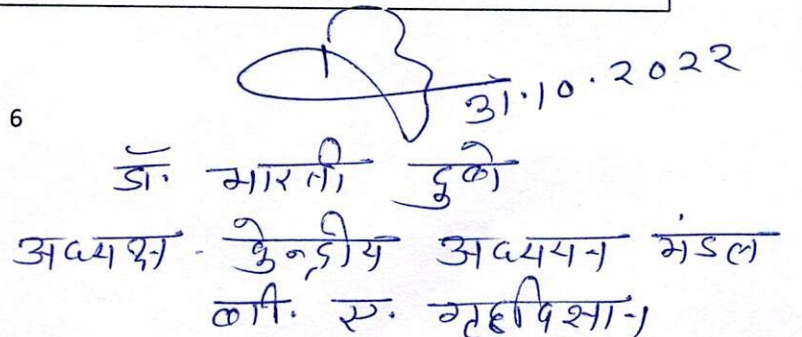 31.10.2022
6
डॉ. भारती दुबे
अध्यक्ष - केन्द्रीय अध्ययन मंडल
बी. ए. गृहविज्ञान